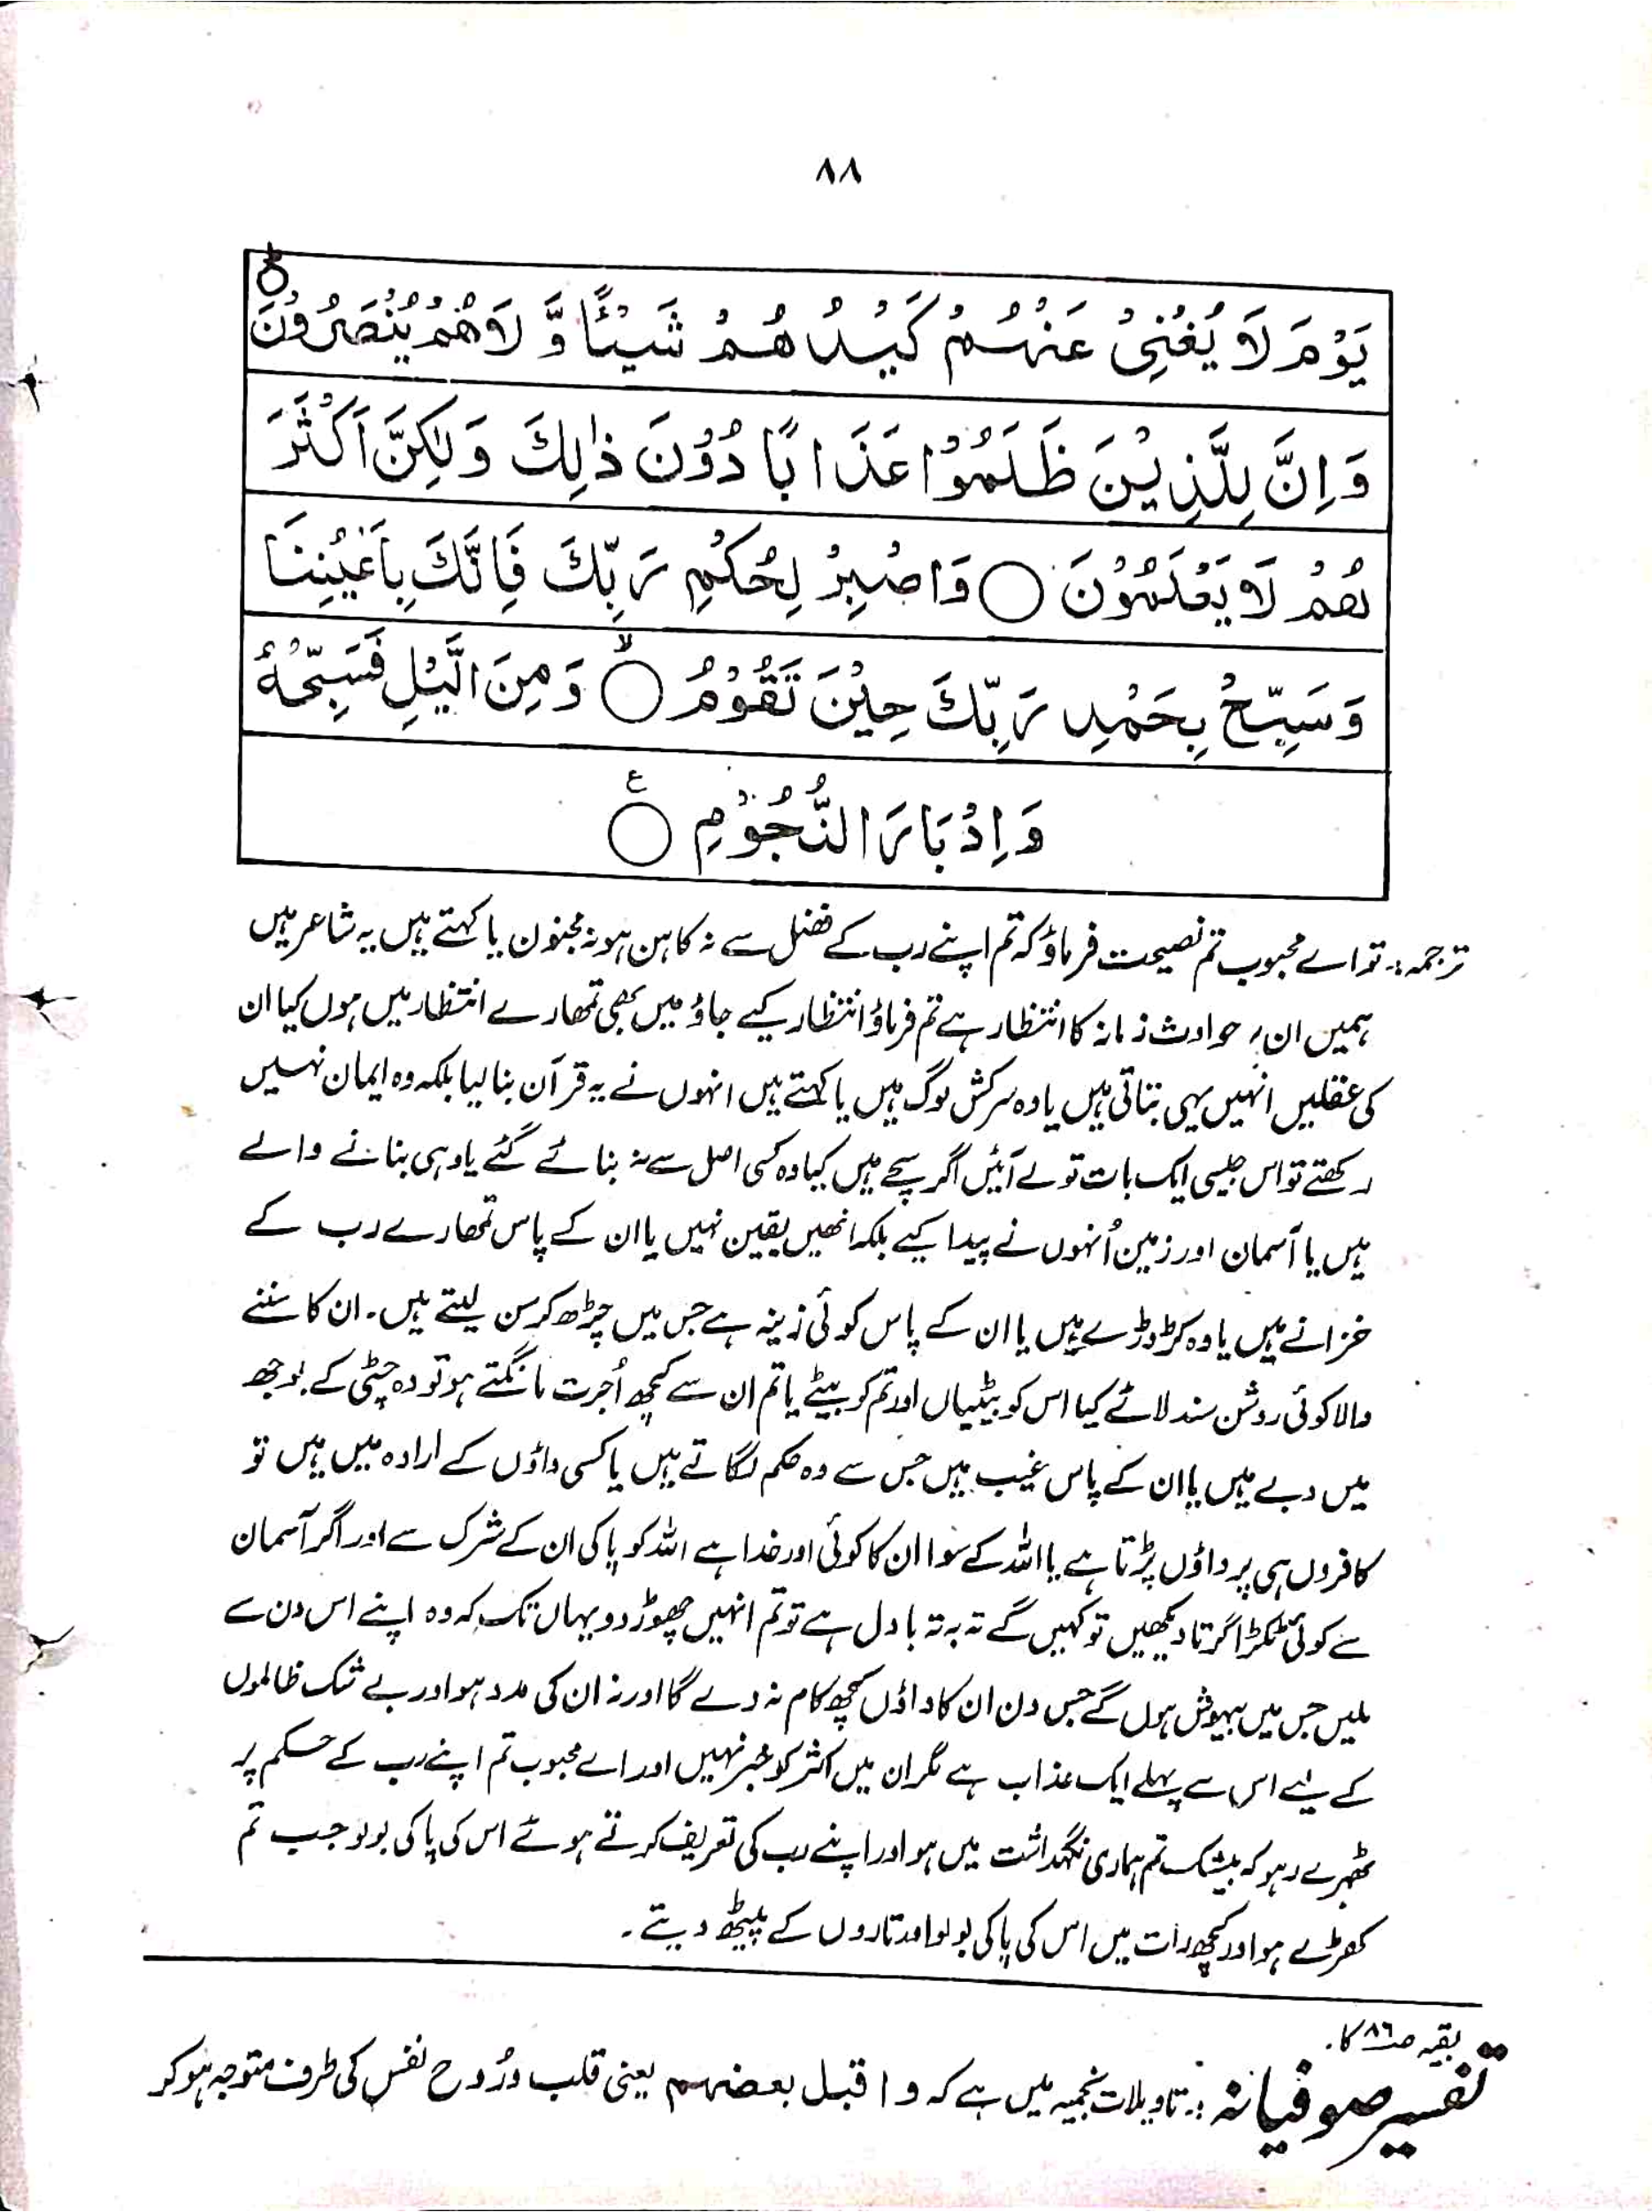 ۸۸
یَوْمَ لَا یُغْنِیْ عَنْهُمْ كَیْدُهُمْ شَیْـًٔا وَّ لَا هُمْ یُنْصَرُوْنَ ؕ
وَ اِنَّ لِلَّذِیْنَ ظَلَمُوْا عَذَابًا دُوْنَ ذٰلِكَ وَ لٰكِنَّ اَكْثَرَ
هُمْ لَا یَعْلَمُوْنَ ○ وَ اصْبِرْ لِحُكْمِ رَبِّكَ فَاِنَّكَ بِاَعْیُنِنَا
وَ سَبِّحْ بِحَمْدِ رَبِّكَ حِیْنَ تَقُوْمُ ○ۙ وَ مِنَ الَّیْلِ فَسَبِّحْهُ
وَ اِدْبَارَ النُّجُوْمِ ○ۧ
ترجمہ:۔ تو اے محبوب تم نصیحت فرماؤ کہ تم اپنے رب کے فضل سے نہ کاہن ہو نہ مجنون یا کہتے ہیں یہ شاعر ہیں
ہمیں ان پر حوادث زمانہ کا انتظار ہے تم فرماؤ انتظار کیے جاؤ میں بھی تمھارے انتظار میں ہوں کیا ان
کی عقلیں انہیں یہی بتاتی ہیں یا وہ سرکش لوگ ہیں یا کہتے ہیں انہوں نے یہ قرآن بنا لیا بلکہ وہ ایمان نہیں
رکھتے تو اس جیسی ایک بات تو لے آئیں اگر سچے ہیں کیا وہ کسی اصل سے نہ بنائے گئے یا وہی بنانے والے
ہیں یا آسمان اور زمین اُنہوں نے پیدا کیے بلکہ انھیں یقین نہیں یا ان کے پاس تمھارے رب کے
خزانے ہیں یا وہ کڑوڑے ہیں یا ان کے پاس کوئی زینہ ہے جس میں چڑھ کر سن لیتے ہیں۔ ان کا سننے
والا کوئی روشن سند لائے کیا اس کو بیٹیاں اور تم کو بیٹے یا تم ان سے کچھ اُجرت مانگتے ہو تو وہ چٹی کے بوجھ
میں دبے ہیں یا ان کے پاس غیب ہیں جس سے وہ حکم لگاتے ہیں یا کسی داؤں کے ارادہ میں ہیں تو
کافروں ہی پر داؤں پڑتا ہے یا اللہ کے سوا ان کا کوئی اور خدا ہے اللہ کو پاکی ان کے شرک سے اور اگر آسمان
سے کوئی ٹکڑا گرتا دیکھیں تو کہیں گے تہ بہ تہ بادل ہے تو تم انہیں چھوڑ دو یہاں تک کہ وہ اپنے اس دن سے
ملیں جس میں بیہوش ہوں گے جس دن ان کا داؤں کچھ کام نہ دے گا اور نہ ان کی مدد ہو اور بے شک ظالموں
کے لیے اس سے پہلے ایک عذاب ہے مگر ان میں اکثر کو خبر نہیں اور اے محبوب تم اپنے رب کے حکم پر
ٹھہرے رہو کہ بیشک تم ہماری نگہداشت میں ہو اور اپنے رب کی تعریف کرتے ہوئے اس کی پاکی بولو جب تم
کھڑے ہو اور کچھ رات میں اس کی پاکی بولو اور تاروں کے پیٹھ دیتے۔
بقیہ صـ۸۶ کا۔
تفسیر صوفیانہ :۔ تاویلات نجمیہ میں ہے کہ و اقبل بعضہم یعنی قلب و رُوح نفس کی طرف متوجہ ہو کر